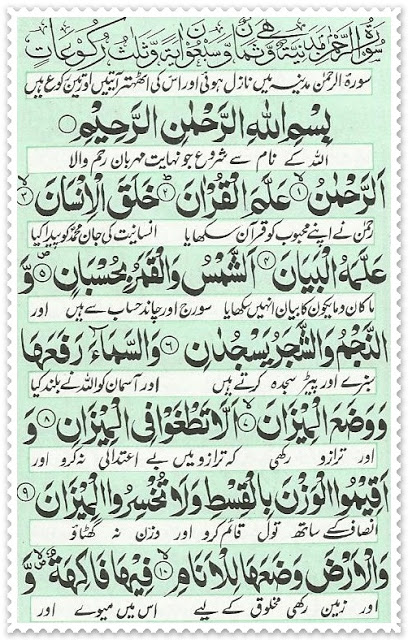 سورة الرحمن مدنية وهي ثمان وسبعون آية وثلث ركوعات
سورۃ الرحمٰن مدینہ میں نازل ہوئی اور اس کی اٹھتر آیتیں اور تین رکوع ہیں
بِسْمِ اللهِ الرَّحْمٰنِ الرَّحِيْمِ
اللہ کے نام سے شروع جو نہایت مہربان رحم والا
اَلرَّحْمٰنُ ۙ﴿۱﴾ عَلَّمَ الْقُرْاٰنَ ؕ﴿۲﴾ خَلَقَ الْاِنْسَانَ ۙ﴿۳﴾
رحمٰن نے اپنے محبوب کو قرآن سکھایا انسانیت کی جان محمد کو پیدا کیا
عَلَّمَهُ الْبَيَانَ ﴿۴﴾ اَلشَّمْسُ وَالْقَمَرُ بِحُسْبَانٍ ﴿۵﴾ وَّ
ما کان وما یکون کا بیان انہیں سکھایا سورج اور چاند حساب سے ہیں اور
النَّجْمُ وَالشَّجَرُ يَسْجُدٰنِ ﴿۶﴾ وَالسَّمَآءَ رَفَعَهَا
سبزے اور پیڑ سجدہ کرتے ہیں اور آسمان کو اللہ نے بلند کیا
وَوَضَعَ الْمِيْزَانَ ۙ﴿۷﴾ اَلَّا تَطْغَوْا فِى الْمِيْزَانِ ﴿۸﴾ وَ
اور ترازو رکھی کہ ترازو میں بے اعتدالی نہ کرو اور
اَقِيْمُوا الْوَزْنَ بِالْقِسْطِ وَلَا تُخْسِرُوا الْمِيْزَانَ ﴿۹﴾
انصاف کے ساتھ تول قائم کرو اور وزن نہ گھٹاؤ
وَالْاَرْضَ وَضَعَهَا لِلْاَنَامِ ۙ﴿۱۰﴾ فِيْهَا فَاكِهَةٌ ۙ وَّ
اور زمین رکھی مخلوق کے لیے اس میں میوے اور